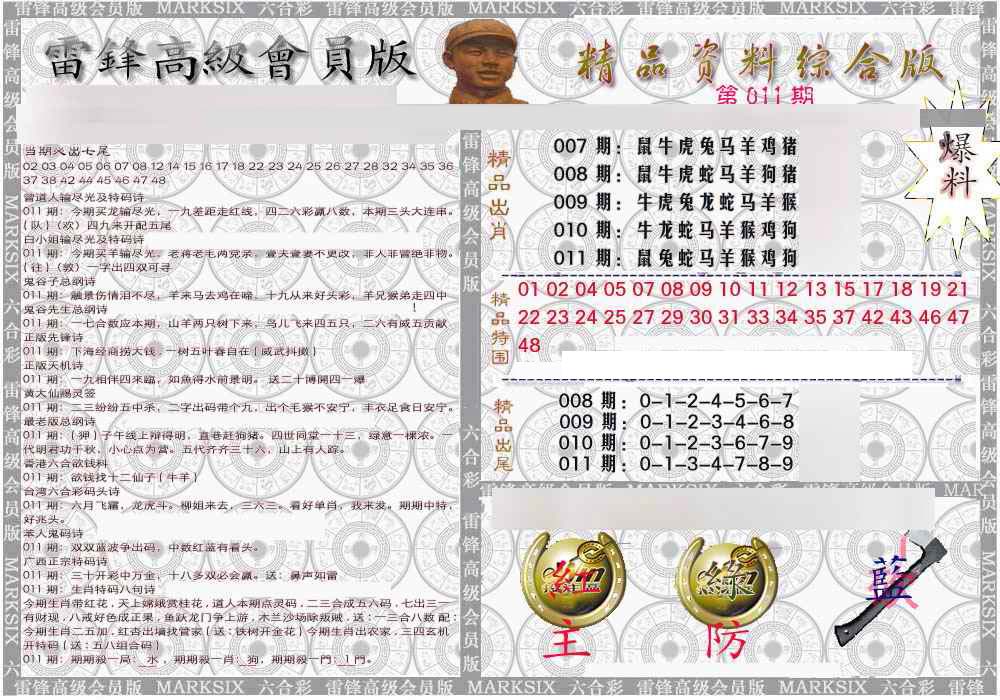 雷锋高级会员版 MARKSIX 六合彩 雷锋高级会员版 MARKSIX 六合彩 雷锋高级会员版 MARKSIX 六合彩 雷锋
雷鋒高級會員版
精品资料综合版
第 011 期
爆料
当期灵出七尾
02 03 04 05 06 07 08 12 14 15 16 17 18 22 23 24 25 26 27 28 32 34 35 36
37 38 42 44 45 46 47 48
曾道人输尽光及特码诗
011 期：今期买龙输尽光，一九差距走红线，四二六彩赢八数，本期三头大连串。
{队}〈欢〉四九来开配五尾
白小姐输尽光及特码诗
011 期：今期买羊输尽光，老蒋老毛两党亲，壹夫壹妻不更改，非人非曾绝非物。
{往}〈敦〉一字出四双可寻
鬼谷子总纲诗
011 期：融景伤情泪不尽，羊来马去鸡在啼，十九从来好头彩，羊兄猴弟走四中
鬼谷先生总纲诗
011 期：一七合数应本期，山羊两只树下来，鸟儿飞来四五只，二六有威五贡献
正版先锋诗
011 期：下海经商捞大钱，一树五叶春自在{威武抖擞}
正版天机诗
011 期：一九相伴四來臨，如魚得水前景明。 送二十博開四一爆
黄大仙赐灵签
011 期：二三纷纷五中杀，二字出码带个九，出个毛猴不安宁，丰衣足食日安宁。
最老版总纲诗
011 期：{狎}子午线上辩得明，直巷赶狗猪。四世同堂一十三，绿意一棵浓。一
代明君功千秋，小心点为营。五代齐齐三十六，山上有人踪。
香港六合欲钱料
011 期：欲钱找十二仙子{牛羊}
台湾六合彩码头诗
011 期：六月飞霜，龙虎斗。柳姐来去，三六三。看好单肖，我来发。期期中特，
好兆头。
苯人鬼码诗
011 期：双双蓝波争出码，中数红蓝有看头。
广西正宗特码诗
011 期：三十开彩中万金，十八多双必会赢。送：鼻声如雷
011 期：生肖特码八句诗
今期生肖带红花，天上嫦娥赏桂花，道人本期点灵码，二三合成五六码，七出三一
有财现，八戒好色成正果，鱼跃龙门争上游，木兰沙场除叛贼，送：一三合八数 配：
今期生肖二五加，红杏出墙找管家{送：铁树开金花}今期生肖出农家，三四玄机
开特码{送：五八组合码}
011 期：期期殺一局：水，期期殺一肖：狗，期期殺一門：1 門。
精品出肖
007 期：鼠牛虎兔马羊鸡猪
008 期：鼠牛虎蛇马羊狗猪
009 期：牛虎兔龙蛇马羊猴
010 期：牛龙蛇马羊猴鸡狗
011 期：鼠兔蛇马羊猴鸡狗
精品特围
01 02 04 05 07 08 09 10 11 12 13 15 17 18 19 21
22 23 24 25 27 29 30 31 33 34 35 37 42 43 46 47
48
精品出尾
008 期：0-1-2-4-5-6-7
009 期：0-1-2-3-4-6-8
010 期：0-1-2-3-6-7-9
011 期：0-1-3-4-7-8-9
紅 綠 藍
主 防
雷锋高级会员版 MARKSIX 六合彩 雷锋高级会员版 MARKSIX 六合彩 雷锋高级会员版 MARKSIX 六合彩 雷锋